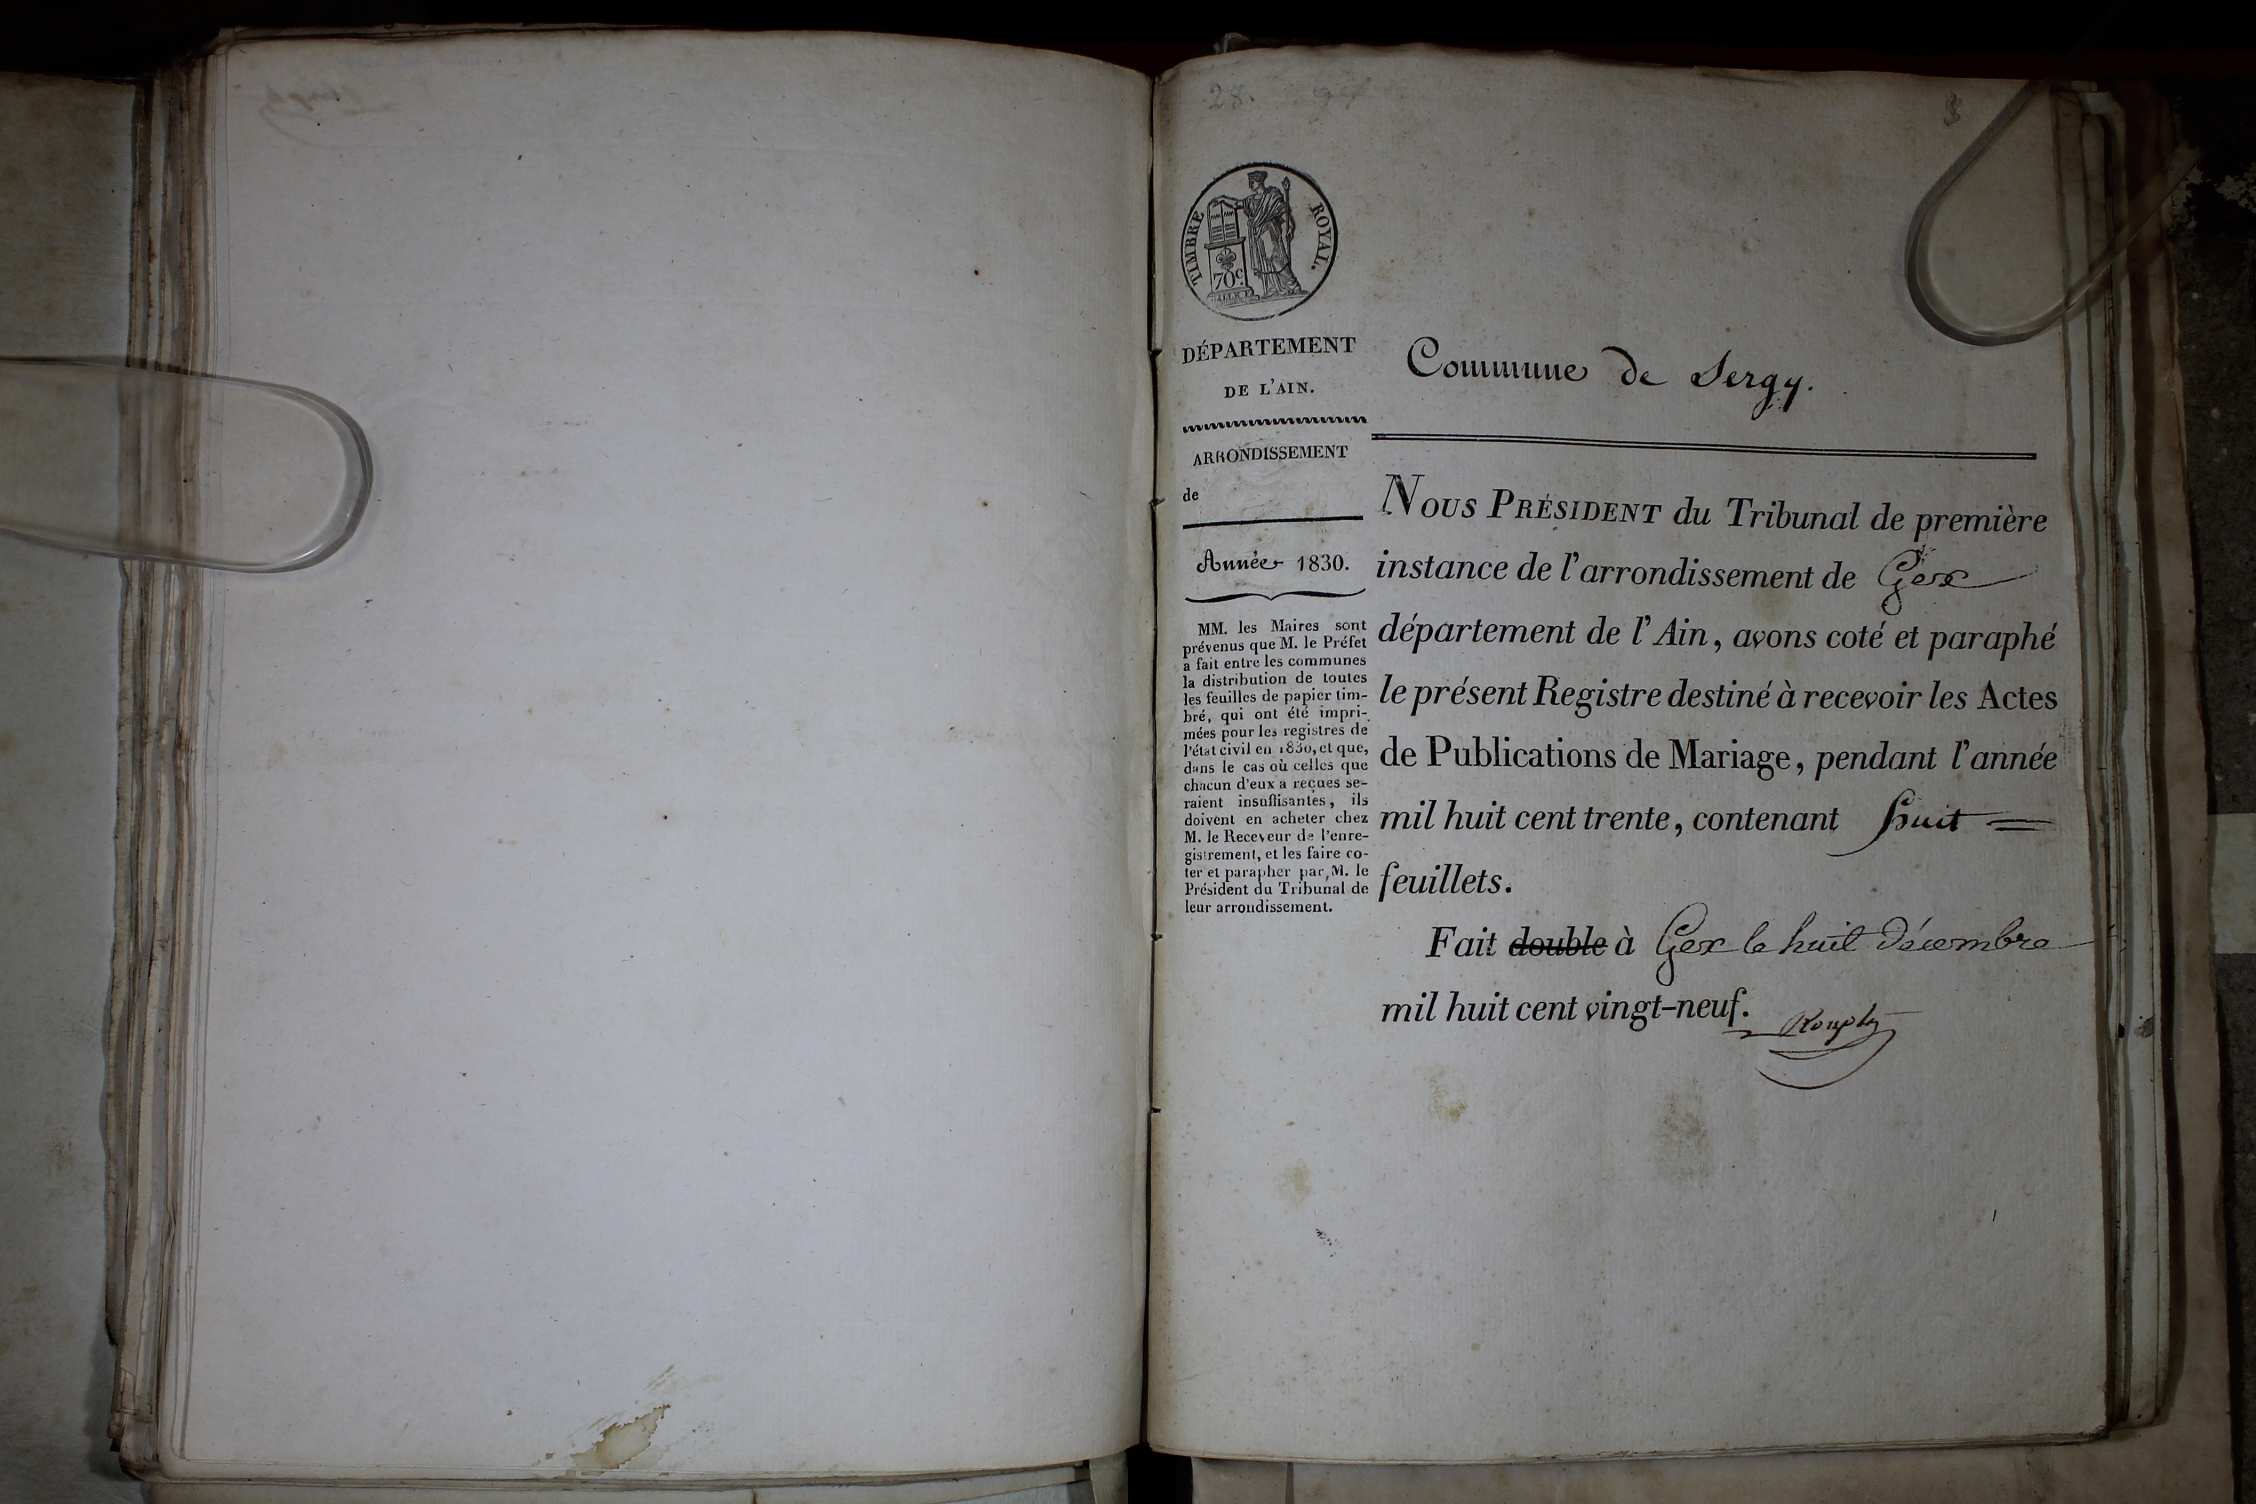 28.
TIMBRE ROYAL.
70c.
DÉPARTEMENT
DE L'AIN.
ARRONDISSEMENT
de
Année 1830.
MM. les Maires sont
prévenus que M. le Préfet
a fait entre les communes
la distribution de toutes
les feuilles de papier tim-
bré, qui ont été impri-
mées pour les registres de
l'état civil en 1830, et que,
dans le cas où celles que
chacun d'eux a reçues se-
raient insuffisantes, ils
doivent en acheter chez
M. le Receveur de l'enre-
gistrement, et les faire co-
ter et parapher par M. le
Président du Tribunal de
leur arrondissement.
Commune de Sergy.
NOUS PRÉSIDENT du Tribunal de première
instance de l'arrondissement de Gex
département de l'Ain, avons coté et paraphé
le présent Registre destiné à recevoir les Actes
de Publications de Mariage, pendant l'année
mil huit cent trente, contenant huit
feuillets.
Fait double à Gex le huit décembre
mil huit cent vingt-neuf.